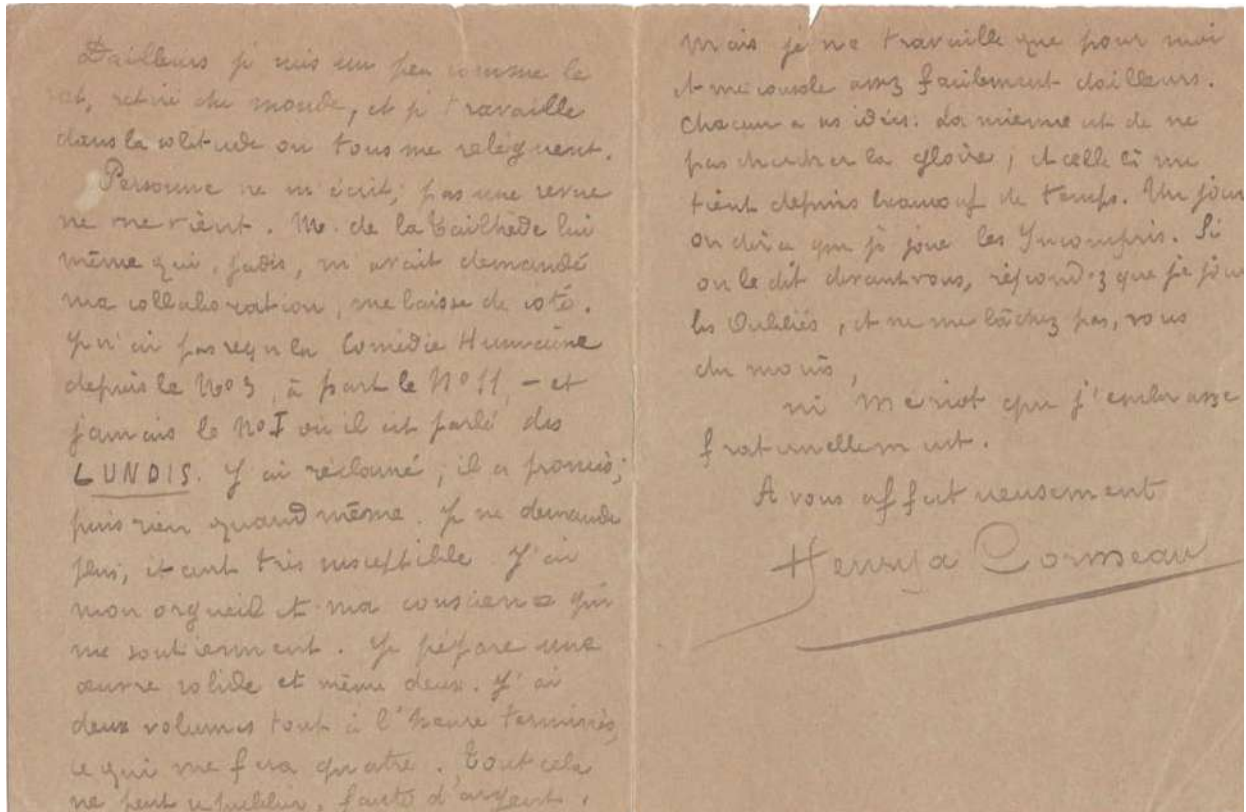 Dailleurs je suis un peu comme le
rat, retiré du monde, et je travaille
dans la solitude ou tous me relèguent.
Personne ne m'écrit; pas une revue
ne me vient. M. de la Tailhède lui
même qui, jadis, m'avait demandé
ma collaboration, me laisse de coté.
Je n'ai pas reçu la Comédie Humaine
depuis le No 3, à part le No 11, - et
jamais le No I où il est parlé des
LUNDIS. J'ai réclamé; il a promis;
puis rien quand même. Je ne demande
plus, étant très susceptible. J'ai
mon orgueil et ma conscience qui
me soutiennent. Je prépare une
œuvre solide et même deux. J'ai
deux volumes tout à l'heure terminés,
ce qui me fera quatre. Tout cela
ne peut se publier, faute d'argent.
mais je ne travaille que pour moi
et me console assez facilement dailleurs.
Chacun a ses idées: La mienne est de ne
pas chercher la gloire; et celle là me
tient depuis beaucoup de temps. Un jour
on dira que je joue les Incompris. Si
on le dit devant vous, répondez que je joue
les Oubliés, et ne me lâchez pas, vous
du moins,
ni Mériot que j'embrasse
fraternellement.
A vous affectueusement
Henry a Cormeau